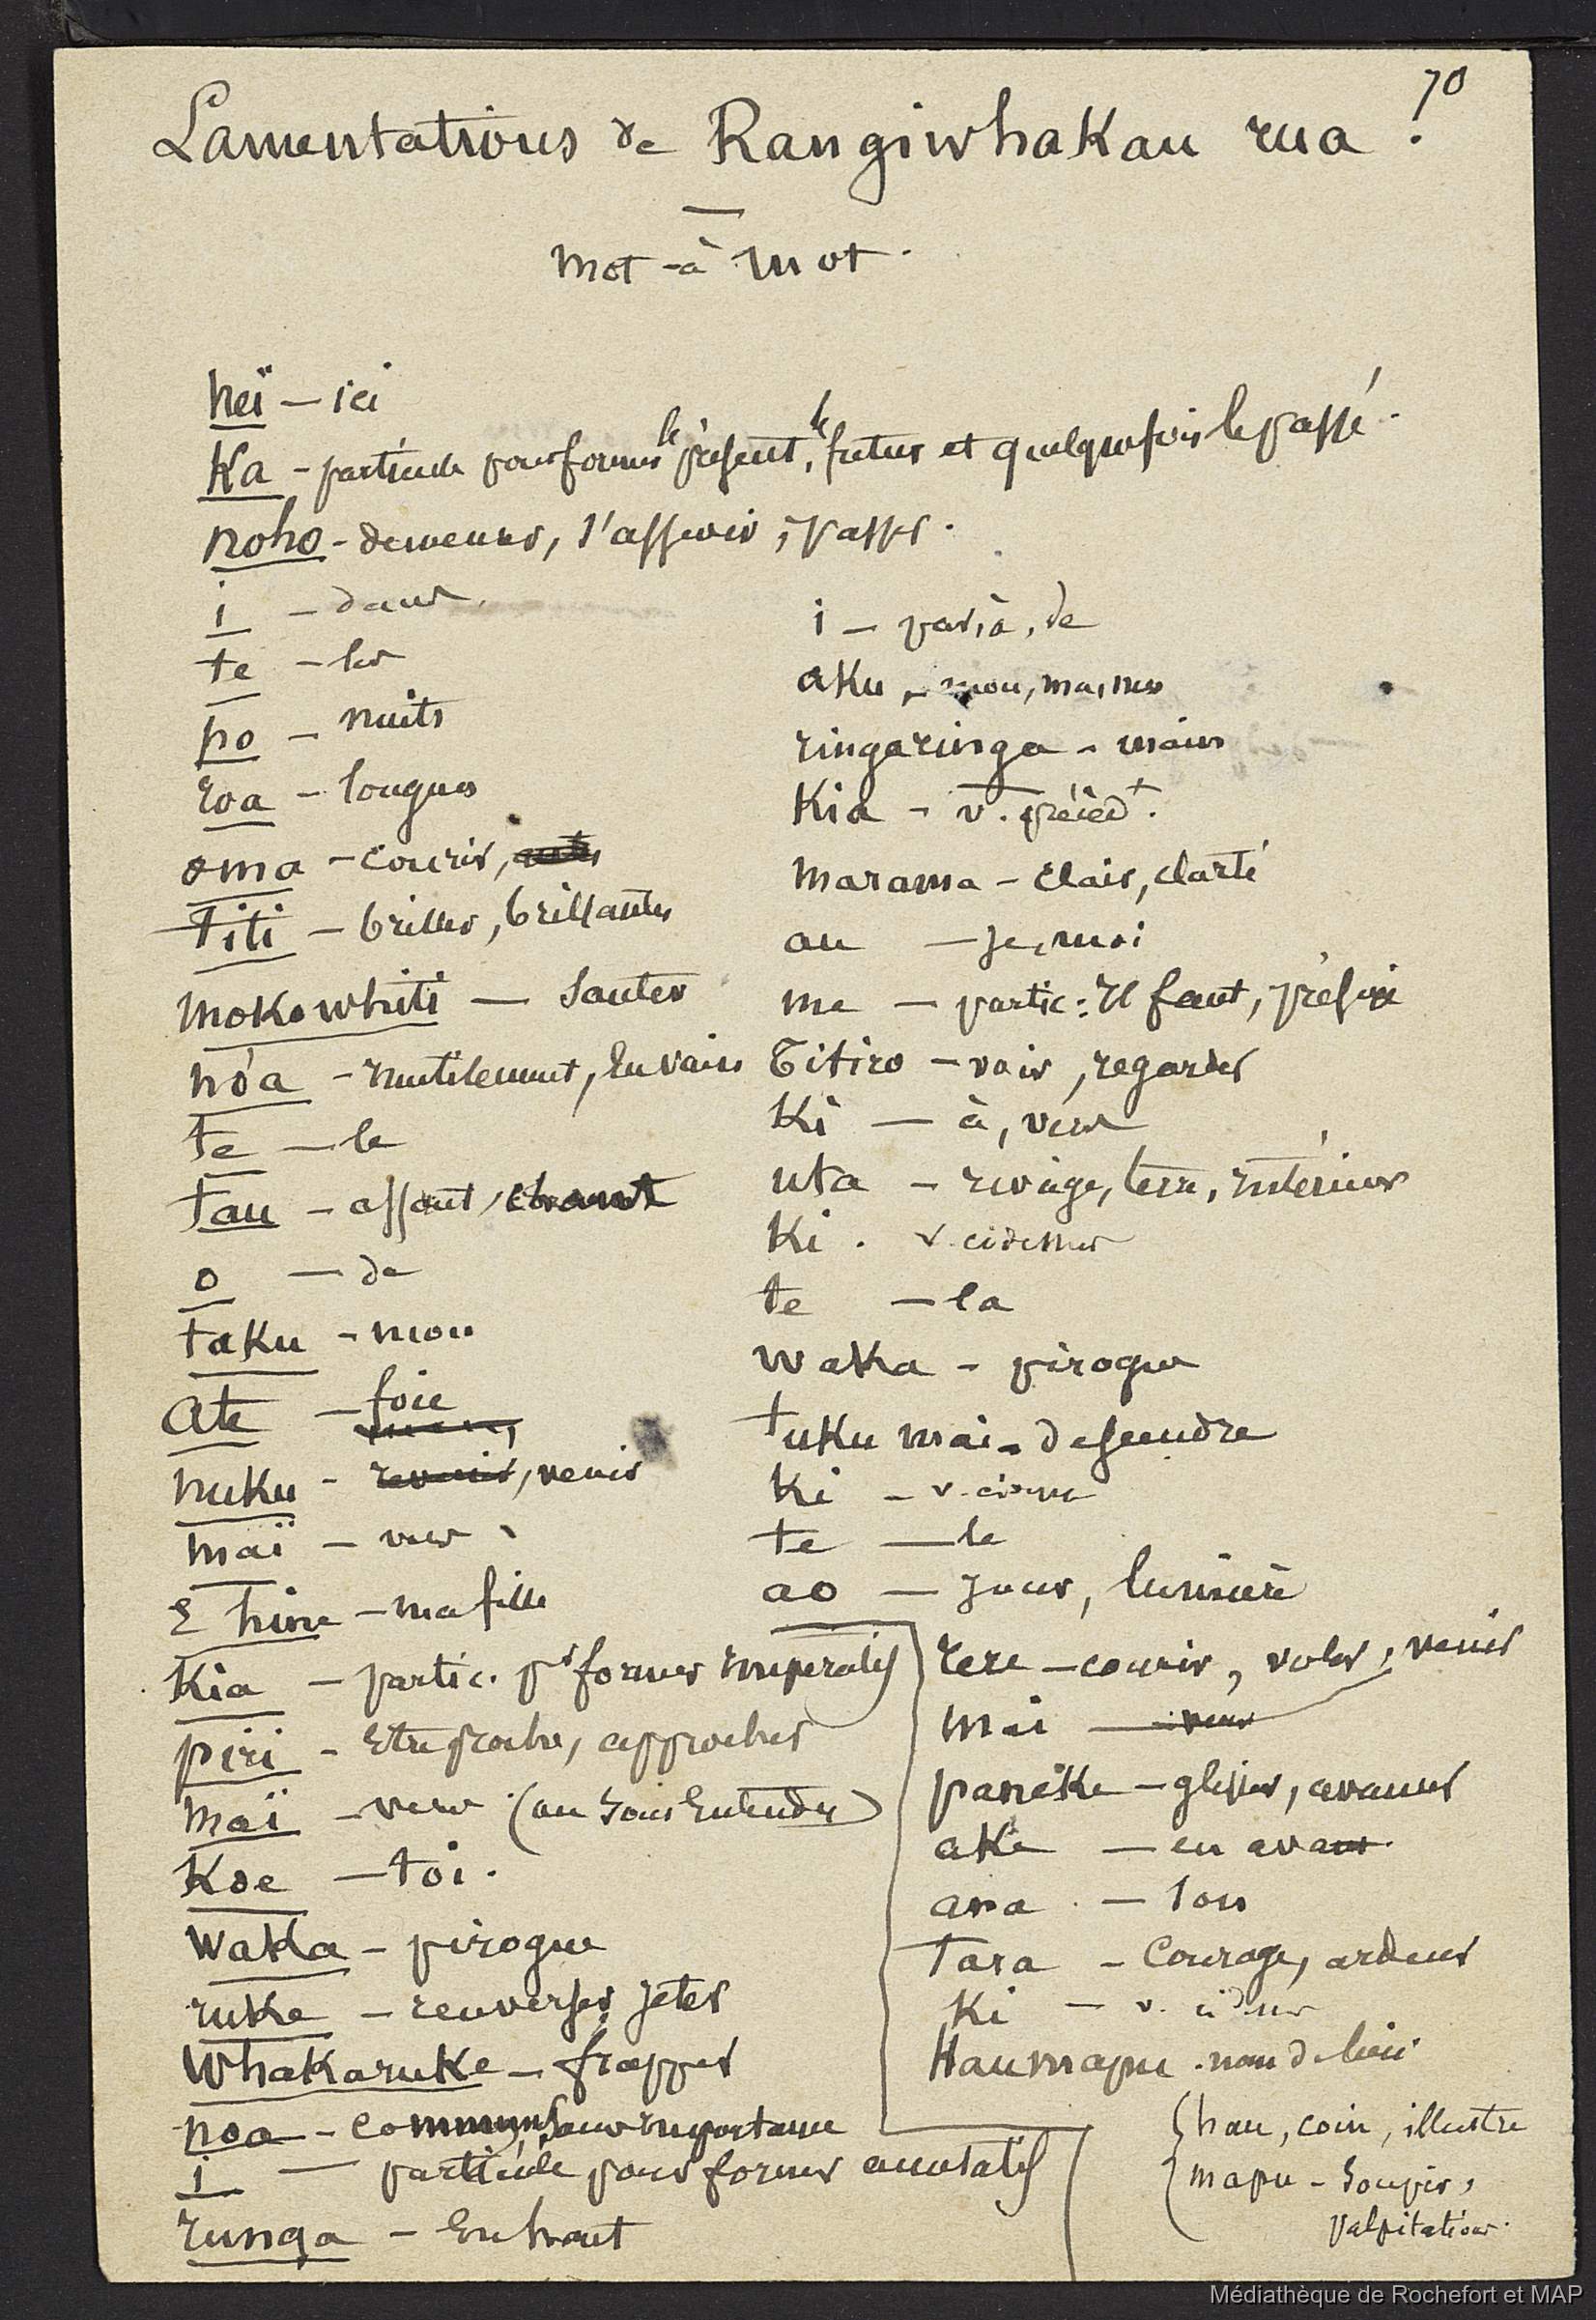 70
Lamentations de Rangiwhakau rua !
mot-à mot.
heï — ici
Ka - particule pour former le présent, le futur et quelquefois le passé.
noho - demeurer, s'asseoir, passer.
i - dans
te - les
po - nuits
roa - longues
oma - courir,
Titi - briller, brillantes
mokowhiti — sauter
nóa - inutilement, en vain
te - le
tau - assaut, chant
o - de
taku - mon
Ate - foie
nuku - revenir, venir
maï - vers
E hine - ma fille
Kia - partic. pr former impératif
piri - Etre proche, approcher
maï - vers (ou sous entendu)
Koe - toi.
Waka - pirogue
ruke - renverser, jeter
Whakaruke - frapper
noa - commun, sans importance
i - particule pour former accusatif
runga - En haut
i - par, à, de
aku - mon, ma, mes
ringaringa - mains
Kia - v. précédt.
marama - clair, clarté
au - je, moi
me - partic: Il faut, préfixe
Titiro - voir, regarder
Ki - à, vers
uta - rivage, terre, intérieur
Ki. v. cidessus
te - la
waka - pirogue
tuku mai - descendre
ki - v. cidessus
te - le
ao - jour, lumière
rere - courir, voler, venir
mai - vers
paneke - glisser, avancer
ake - en avant
ana - son
Tara - Courage, ardeur
Ki - v. cidessus
Haumapu - nom de lieu
(hau, coin, illustre
mapu - soupir,
palpitation.
Médiathèque de Rochefort et MAP